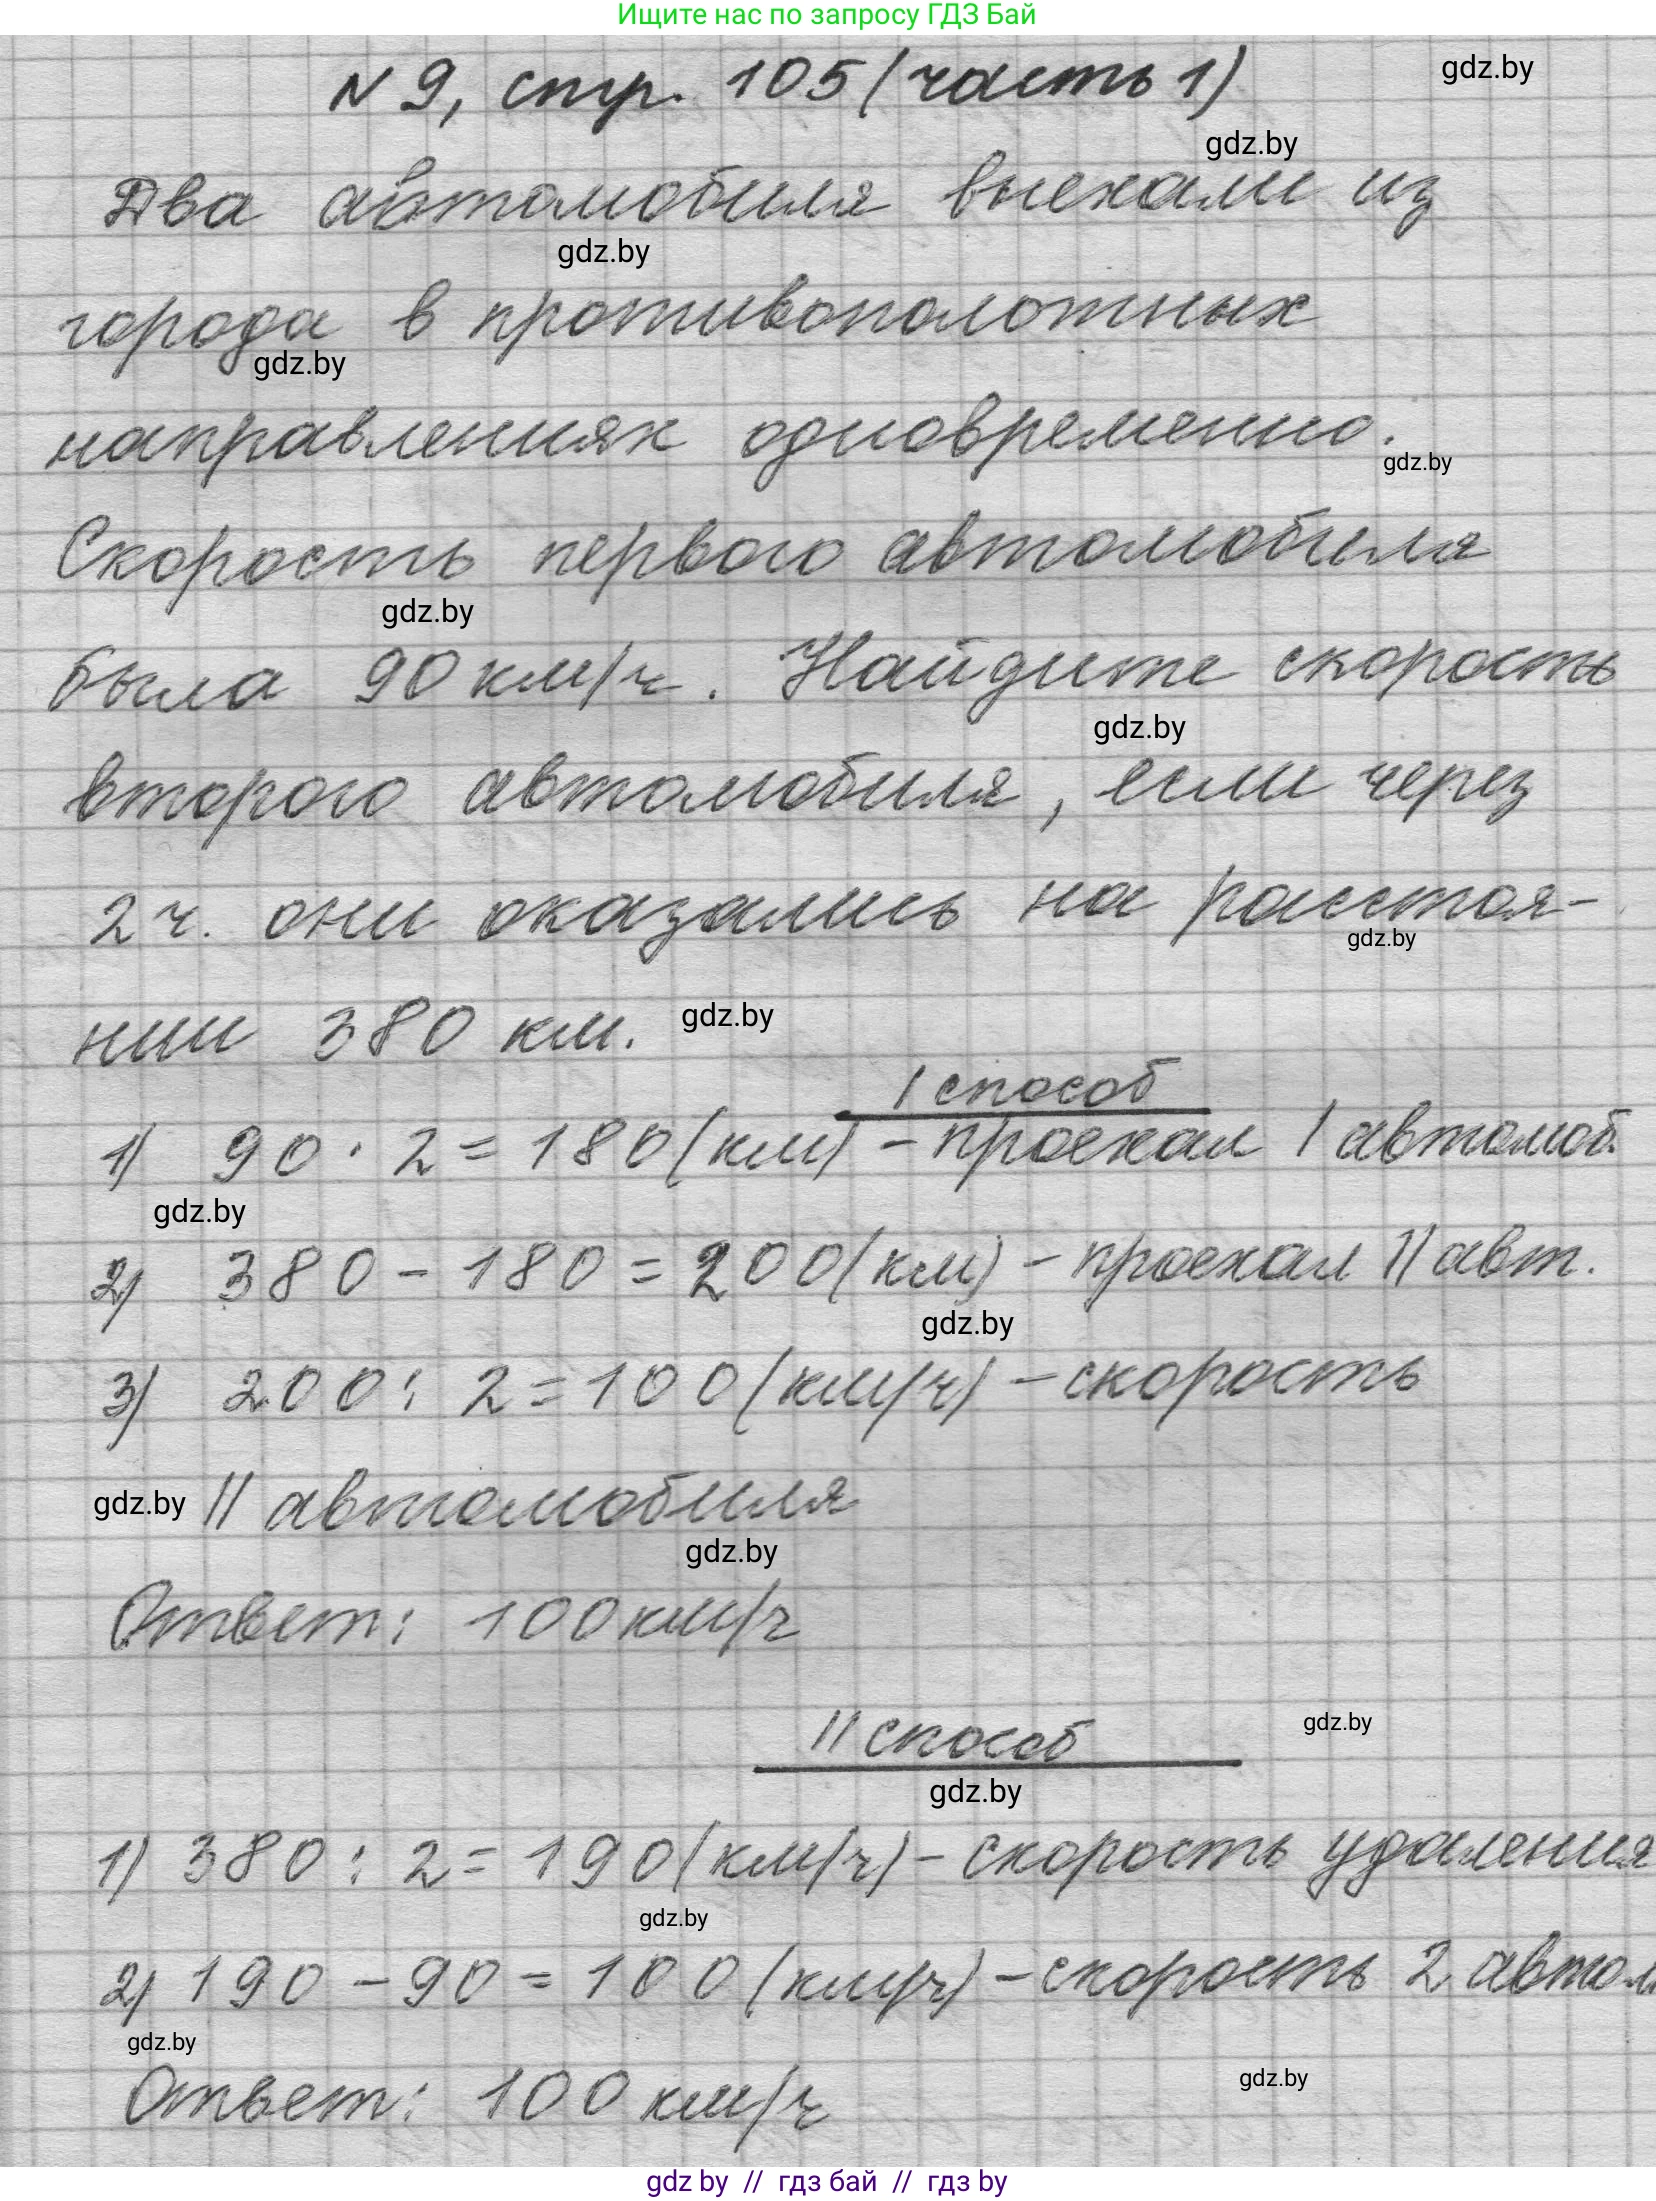 Ищите нас по запросу ГДЗ Бай
N 9, стр. 105 (часть 1)
gdz.by
gdz.by
Два автомобиля выехали из
gdz.by
города в противополотных
gdz.by
направлениях одновременно.
gdz.by
Скорость первого автомобиля
gdz.by
была 90 км/ч. Найдите скорость
gdz.by
второго автомобиля, если через
2 ч. они оказались на расстоя-
gdz.by
нии 380 км.
gdz.by
I способ
1) 90 · 2 = 180 (км) - проехал I автомоб.
gdz.by
2) 380 - 180 = 200 (км) - проехал II авт.
gdz.by
3) 200 : 2 = 100 (км/ч) - скорость
gdz.by II автомобиля
gdz.by
Ответ: 100 км/ч
II способ
gdz.by
gdz.by
1) 380 : 2 = 190 (км/ч) - скорость удаления
gdz.by
2) 190 - 90 = 100 (км/ч) - скорость 2 автом
gdz.by
Ответ: 100 км/ч
gdz.by
gdz by // гдз бай // гдз by